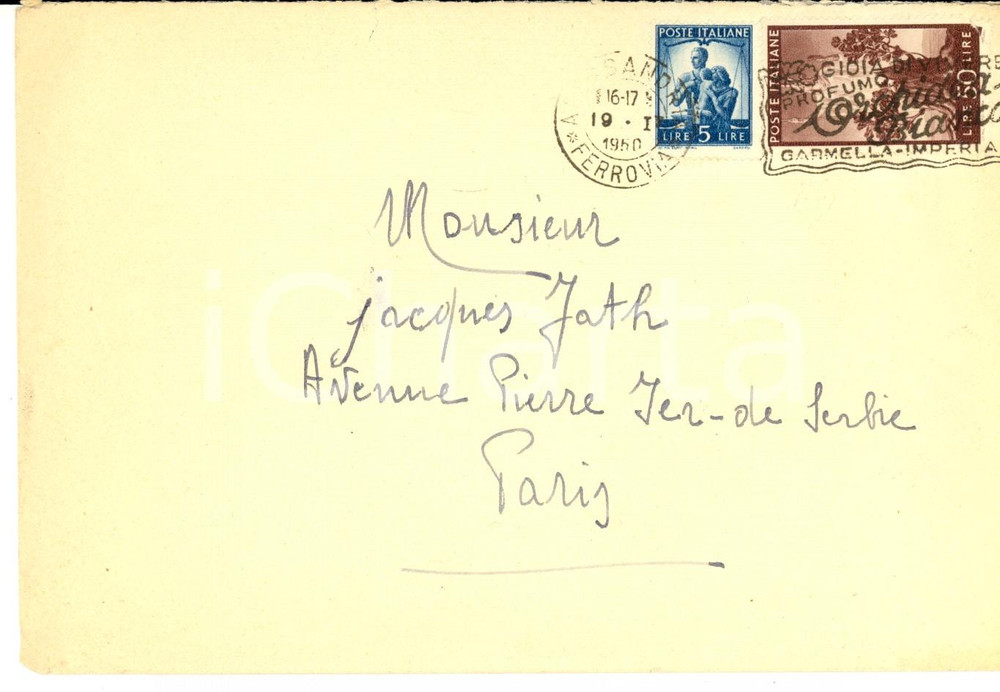 POSTE ITALIANE
LIRE 5 LIRE
POSTE ITALIANE
LIRE 50 LIRE
16-17
19 •
1950
FERROVIA
GIOIA DI VIVERE
PROFUMO
Orchidea
Bianca
GARMELLA-IMPERIA
Monsieur
jacques Jath
Avenue Pierre Ier-de Serbie
Paris
iCharta